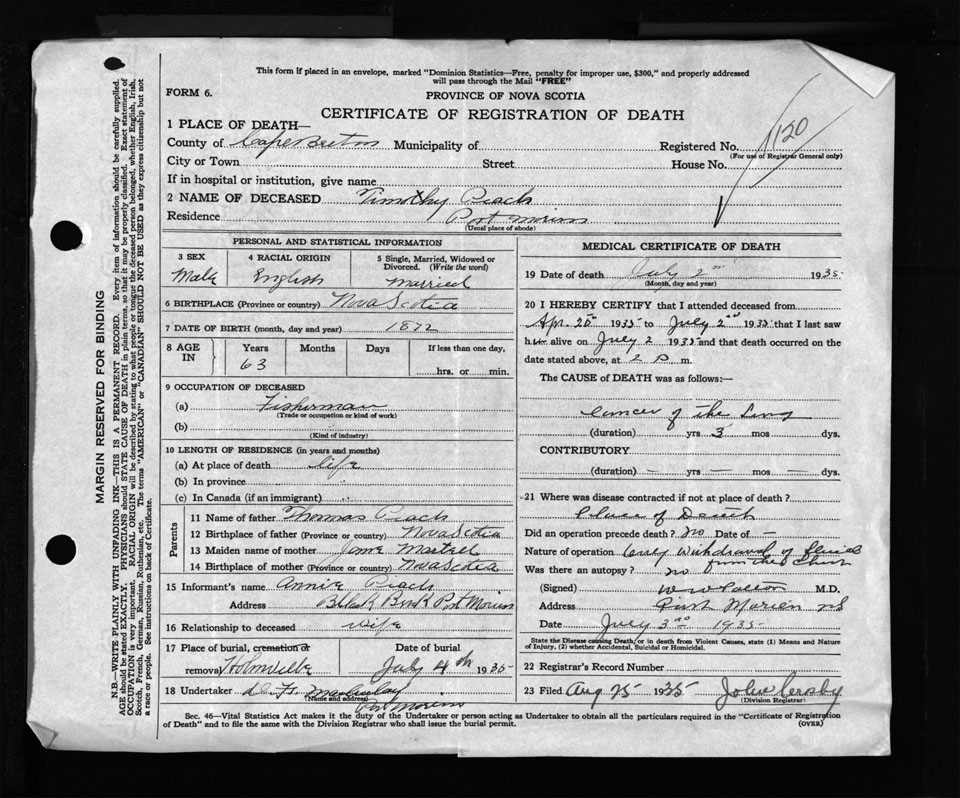 This form if placed in an envelope, marked "Dominion Statistics—Free, penalty for improper use, $300," and properly addressed
will pass through the Mail "FREE"
FORM 6.
PROVINCE OF NOVA SCOTIA
CERTIFICATE OF REGISTRATION OF DEATH
1120
1 PLACE OF DEATH—
County of Cape Breton Municipality of Registered No.
(For use of Registrar General only)
City or Town Street House No.
If in hospital or institution, give name
2 NAME OF DECEASED Timothy Peach
Residence Port Morien
(Usual place of abode)
PERSONAL AND STATISTICAL INFORMATION
3 SEX 4 RACIAL ORIGIN 5 Single, Married, Widowed or Divorced. (Write the word)
Male English Married
6 BIRTHPLACE (Province or country) Nova Scotia
7 DATE OF BIRTH (month, day and year) 1872
8 AGE IN Years Months Days If less than one day,
63 hrs. or min.
9 OCCUPATION OF DECEASED
(a) Fisherman
(Trade or occupation or kind of work)
(b)
(Kind of industry)
10 LENGTH OF RESIDENCE (in years and months)
(a) At place of death life
(b) In province
(c) In Canada (if an immigrant)
Parents
11 Name of father Thomas Peach
12 Birthplace of father (Province or country) Nova Scotia
13 Maiden name of mother Jane Martell
14 Birthplace of mother (Province or country) Nova Scotia
15 Informant's name Annie Peach
Address Black Bank Port Morien
16 Relationship to deceased wife
17 Place of burial, cremation or removal Homville Date of burial July 4th 1935
18 Undertaker
(Name and address)
Port Morien
MEDICAL CERTIFICATE OF DEATH
19 Date of death July 2nd 1935
(Month, day and year)
20 I HEREBY CERTIFY that I attended deceased from
Apr. 25th 1935 to July 2nd 1935 that I last saw
him alive on July 2 1935 and that death occurred on the
date stated above, at 2 P. m.
The CAUSE of DEATH was as follows:—
Cancer of the Lung
(duration) yrs 3 mos dys.
CONTRIBUTORY
(duration) — yrs — mos — dys.
21 Where was disease contracted if not at place of death?
Place of Death
Did an operation precede death? no Date of —
Nature of operation Only withdrawal of fluid
from chest
Was there an autopsy? no
(Signed) W W Patton M.D.
Address Port Morien NS
Date July 3rd 1935
State the Disease causing Death, or in death from Violent Causes, state (1) Means and Nature
of Injury, (2) whether Accidental, Suicidal or Homicidal.
22 Registrar's Record Number
23 Filed Aug 25 1935 John
(Division Registrar)
Sec. 46—Vital Statistics Act makes it the duty of the Undertaker or person acting as Undertaker to obtain all the particulars required in the "Certificate of Registration
of Death" and to file the same with the Division Registrar who shall issue the burial permit.
(OVER)
MARGIN RESERVED FOR BINDING
N.B.—WRITE PLAINLY WITH UNFADING INK—THIS IS A PERMANENT RECORD. Every item of information should be carefully supplied.
AGE should be stated EXACTLY. PHYSICIANS should STATE CAUSE OF DEATH in plain terms, so that it may be properly classified. Exact statement of
OCCUPATION is very important. RACIAL ORIGIN will be described by stating to what people or tongue the deceased person belonged, whether English, Irish,
Scotch, French, German, Russian, Ruthenian, etc. The terms "AMERICAN" or "CANADIAN" SHOULD NOT BE USED as they express citizenship but not
a race or people. See instructions on back of Certificate.